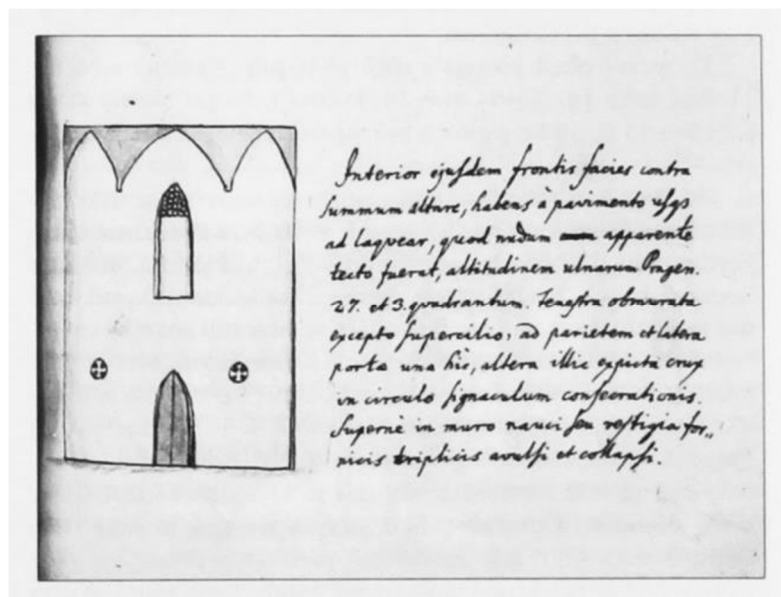 Interior ejusdem frontis facies contra
summum altare, habens a pavimento usqs
ad laquear, quod nudum apparente
tecto fuerat, altitudinem ulnarum Pragen.
27. et 3. quadrantum. Fenestra obmurata
excepto supercilio, ad parietem et libra
porta una hic, altera illic expicta crux
in circulo signaculum consecrationis.
Supernè in muro navei seu vestigia for„
nicis triplicis avulsi et collapsi.